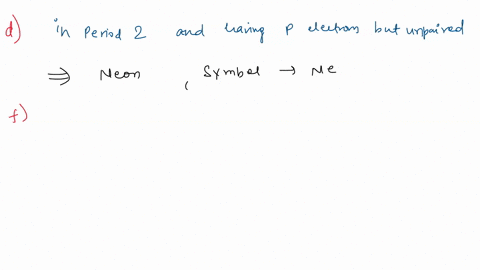 d) in Period 2 and having p electron but unpaired
⇒ Neon , Symbol → Ne
f)